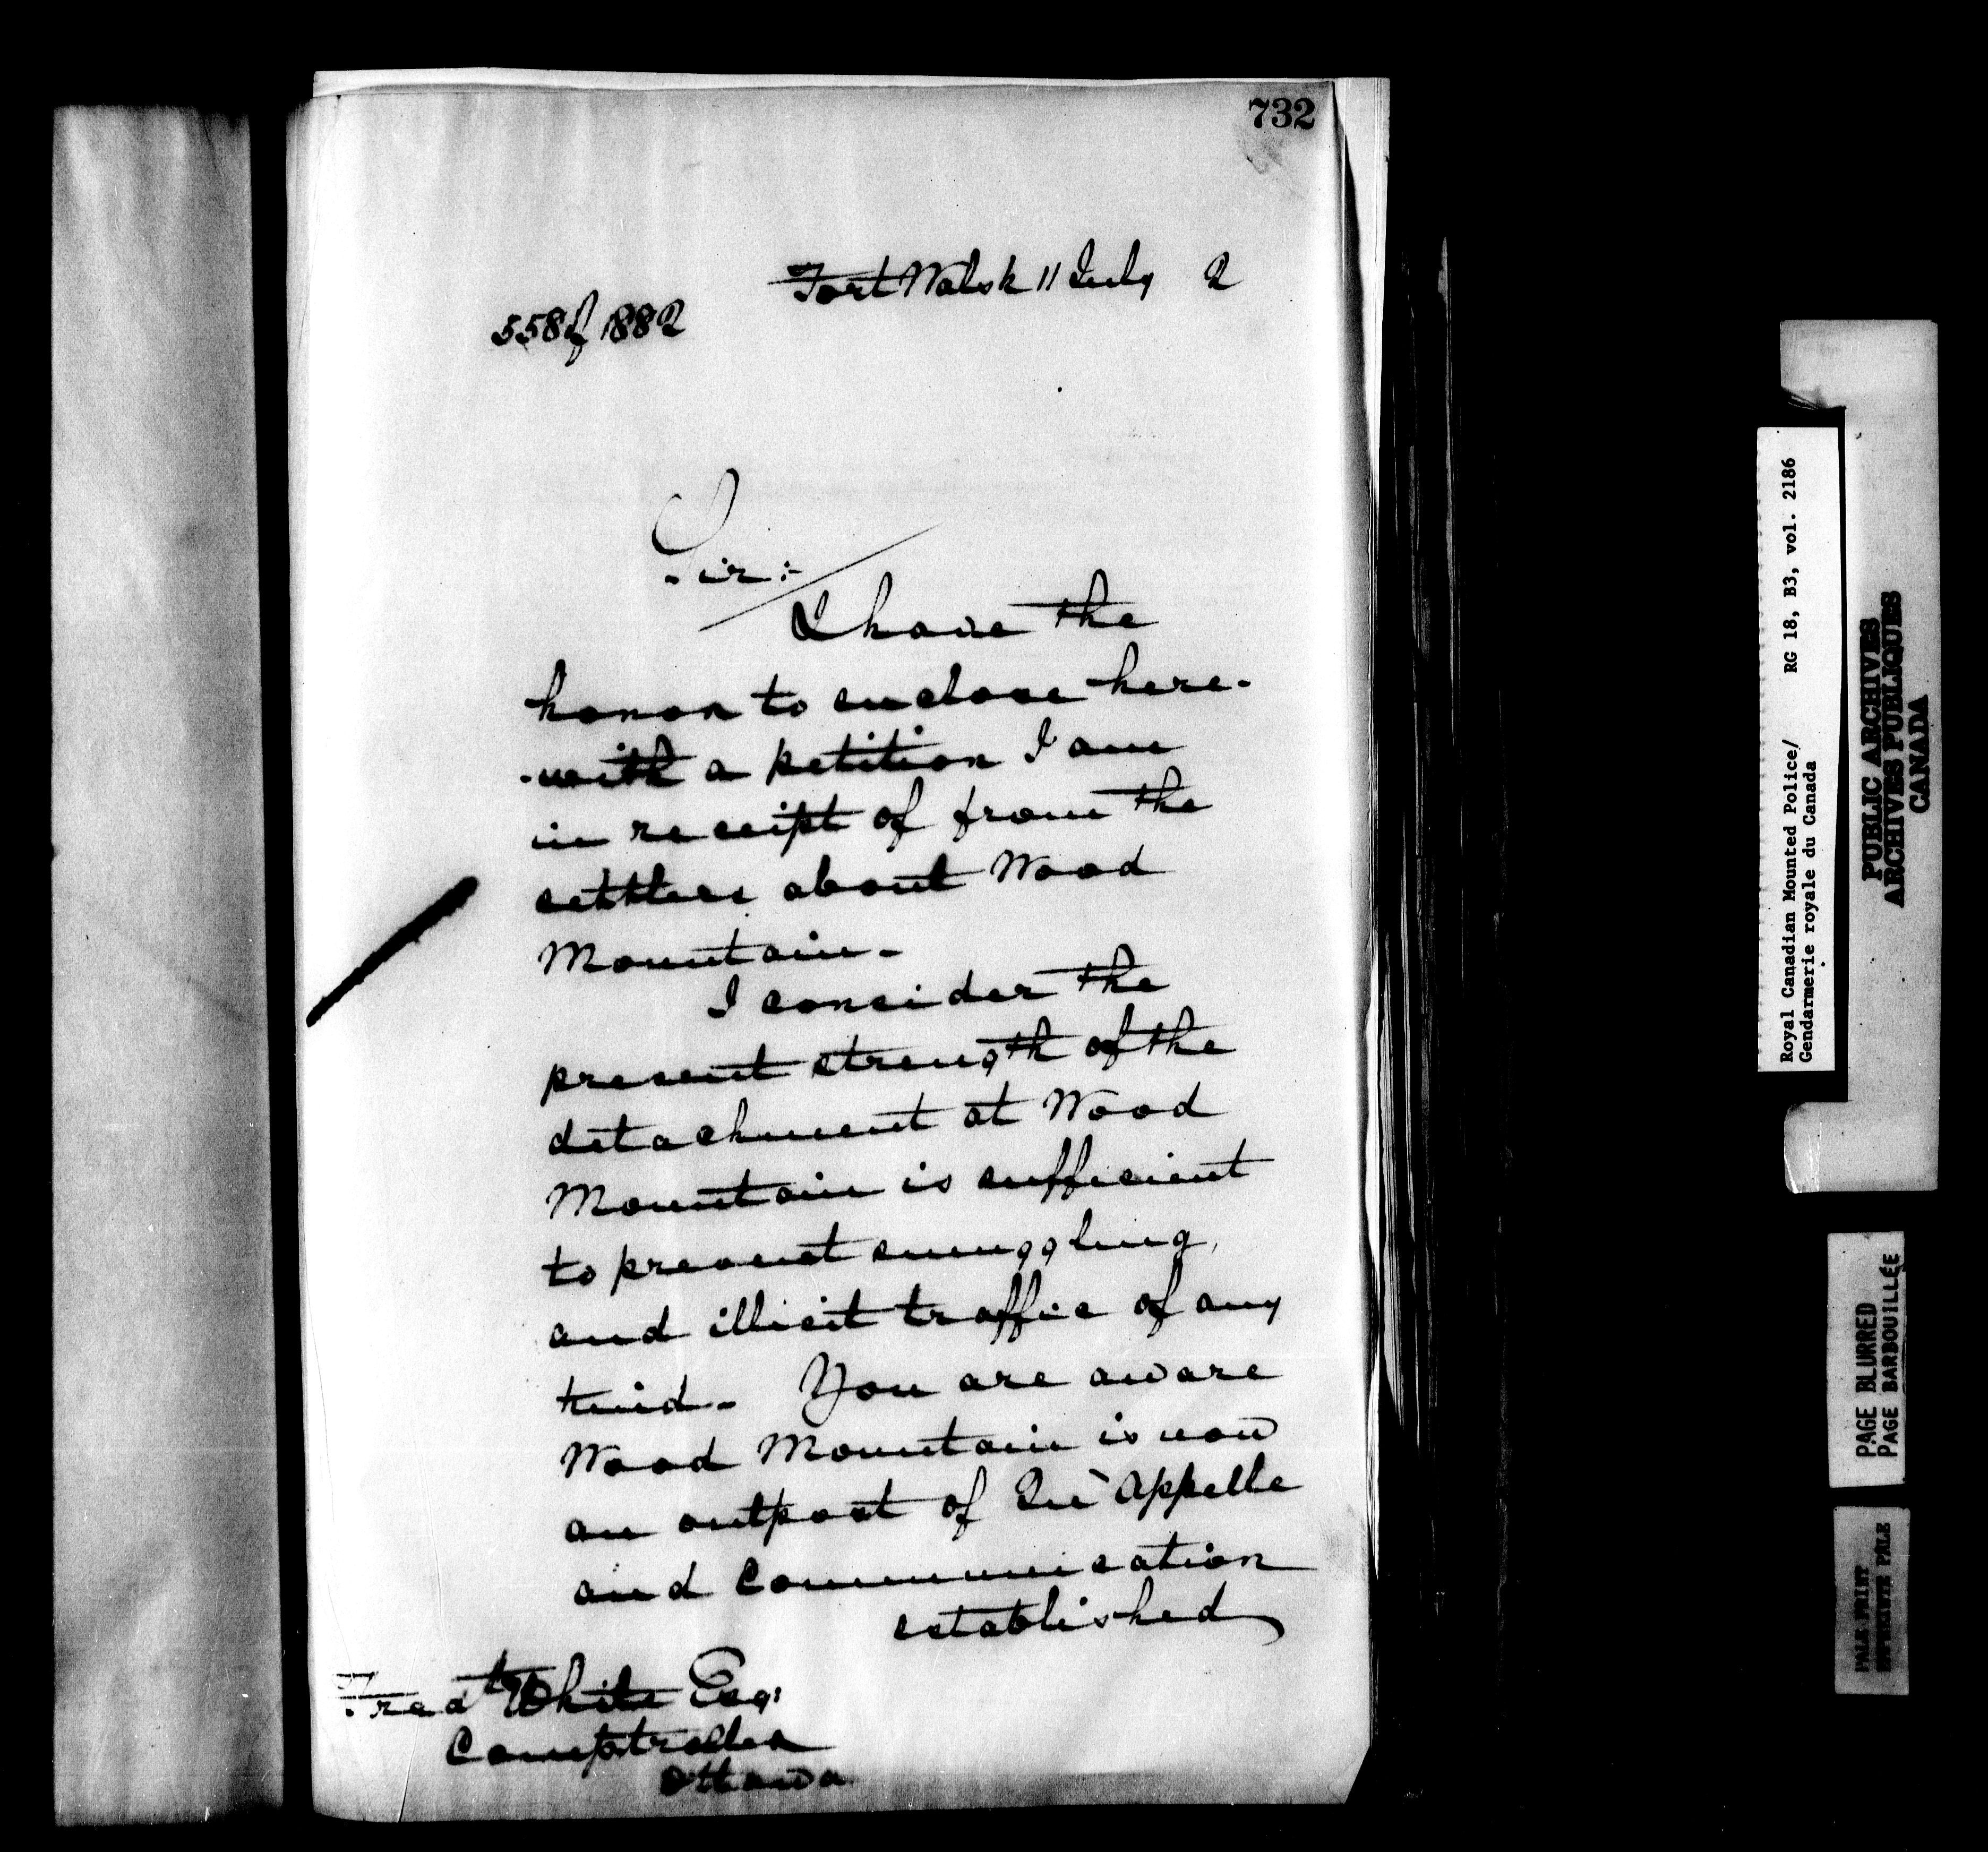 732
Fort Walsh 11 July 2
558 of 1882
Sir :-
I have the
honor to enclose here-
-with a petition I am
in receipt of from the
settlers about Wood
Mountain -
I consider the
present strength of the
detachment at Wood
Mountain is sufficient
to prevent smuggling,
and illicit traffic of any
kind - You are aware
Wood Mountain is now
an outpost of Qu'Appelle
and Communication
established
Fred White Esq:
Comptroller
Ottawa
Royal Canadian Mounted Police/ RG 18, B3, vol. 2186
Gendarmerie royale du Canada
PUBLIC ARCHIVES
ARCHIVES PUBLIQUES
CANADA
PAGE BLURRED
PAGE BARBOUILLÉE
PALE PRINT
EPREUVE PÂLE